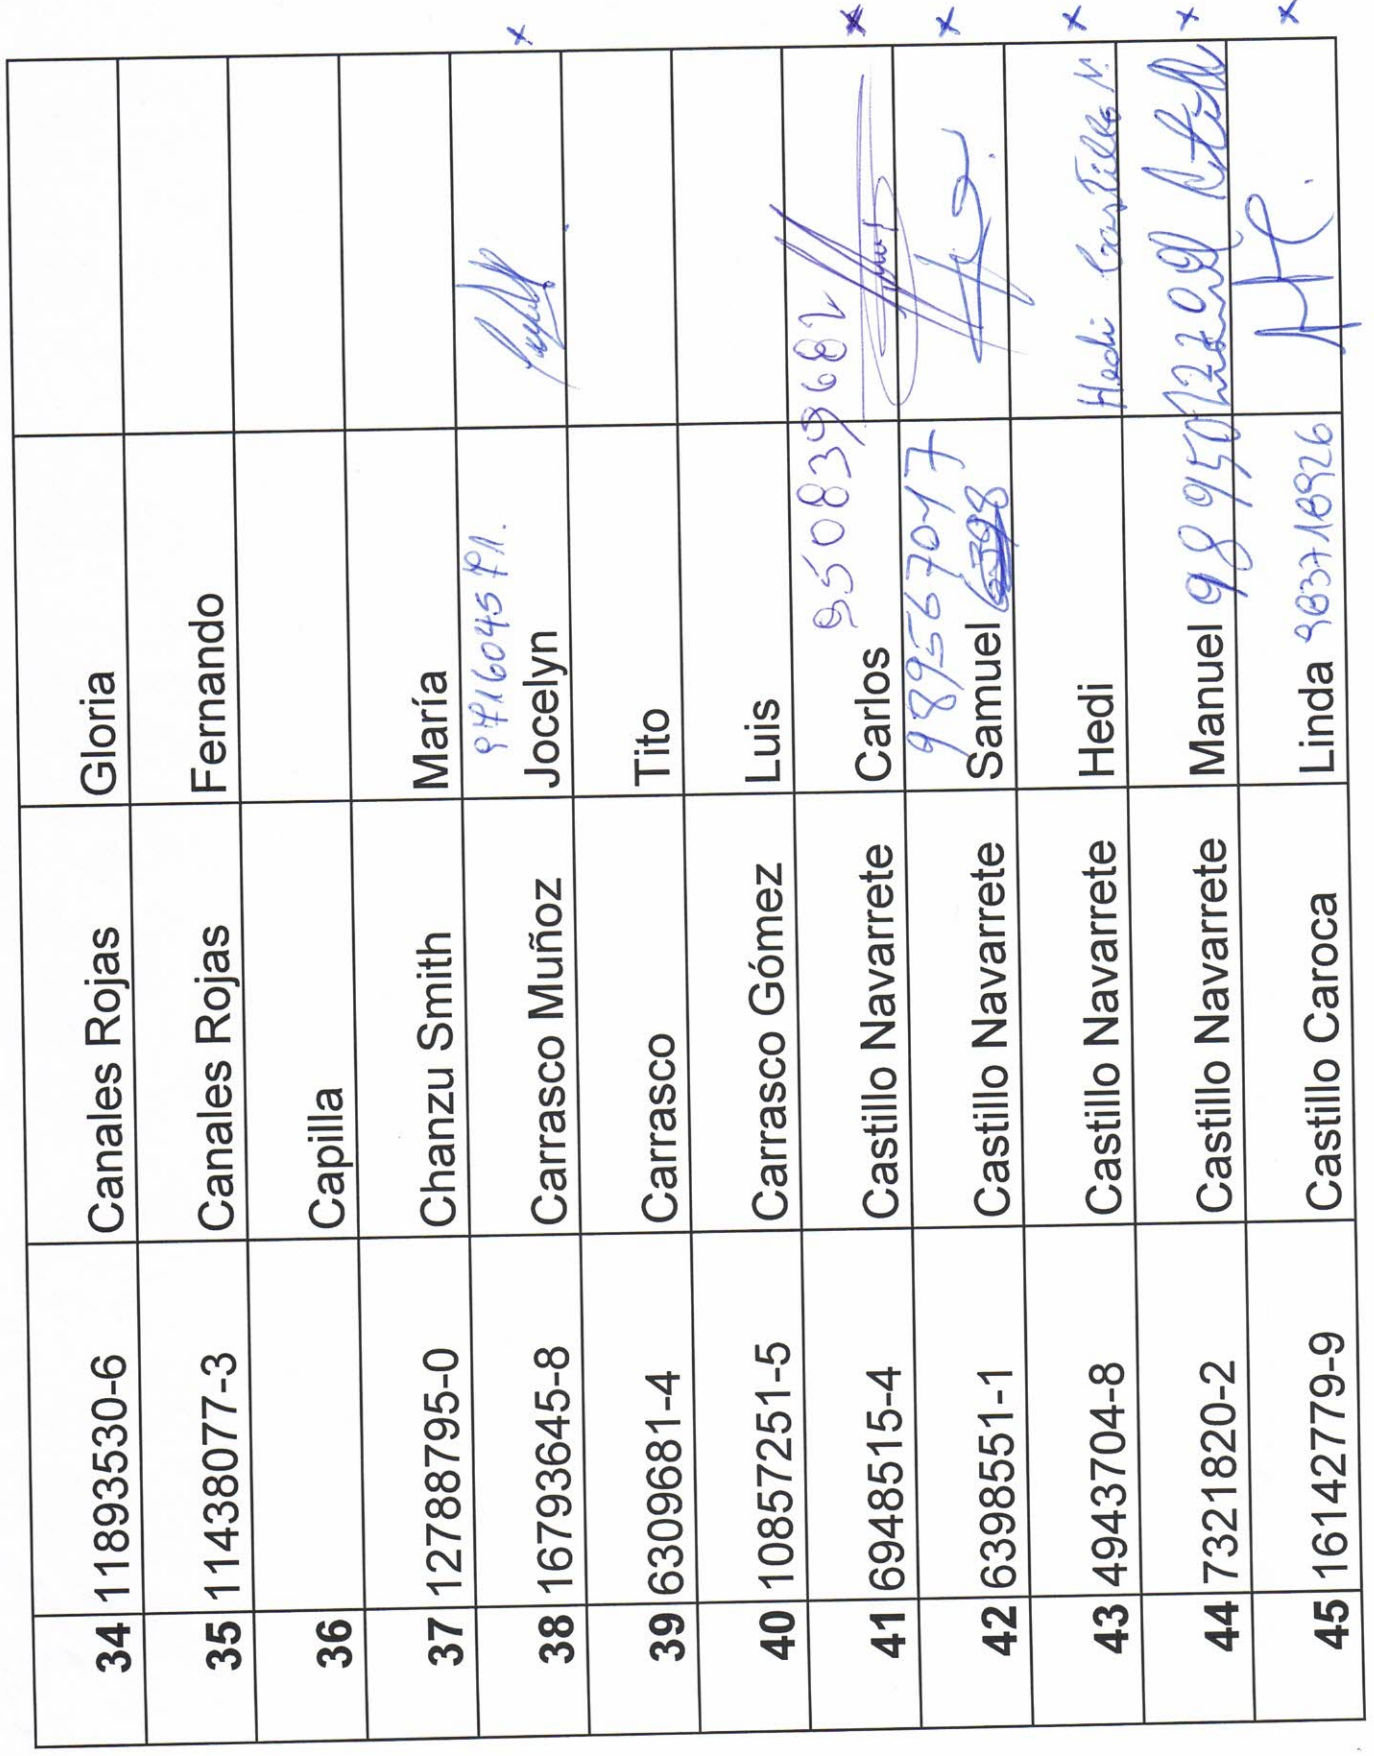 34 11893530-6 Canales Rojas Gloria
35 11438077-3 Canales Rojas Fernando
36 Capilla
37 12788795-0 Chanzu Smith María
38 16793645-8 Carrasco Muñoz Jocelyn x
39 6309681-4 Carrasco Tito
40 10857251-5 Carrasco Gómez Luis
41 6948515-4 Castillo Navarrete Carlos 950839682 x
42 6398551-1 Castillo Navarrete Samuel 989567017 x
43 4943704-8 Castillo Navarrete Hedi Hedi Castillo N. x
44 7321820-2 Castillo Navarrete Manuel x
45 16142779-9 Castillo Caroca Linda 983718926 x